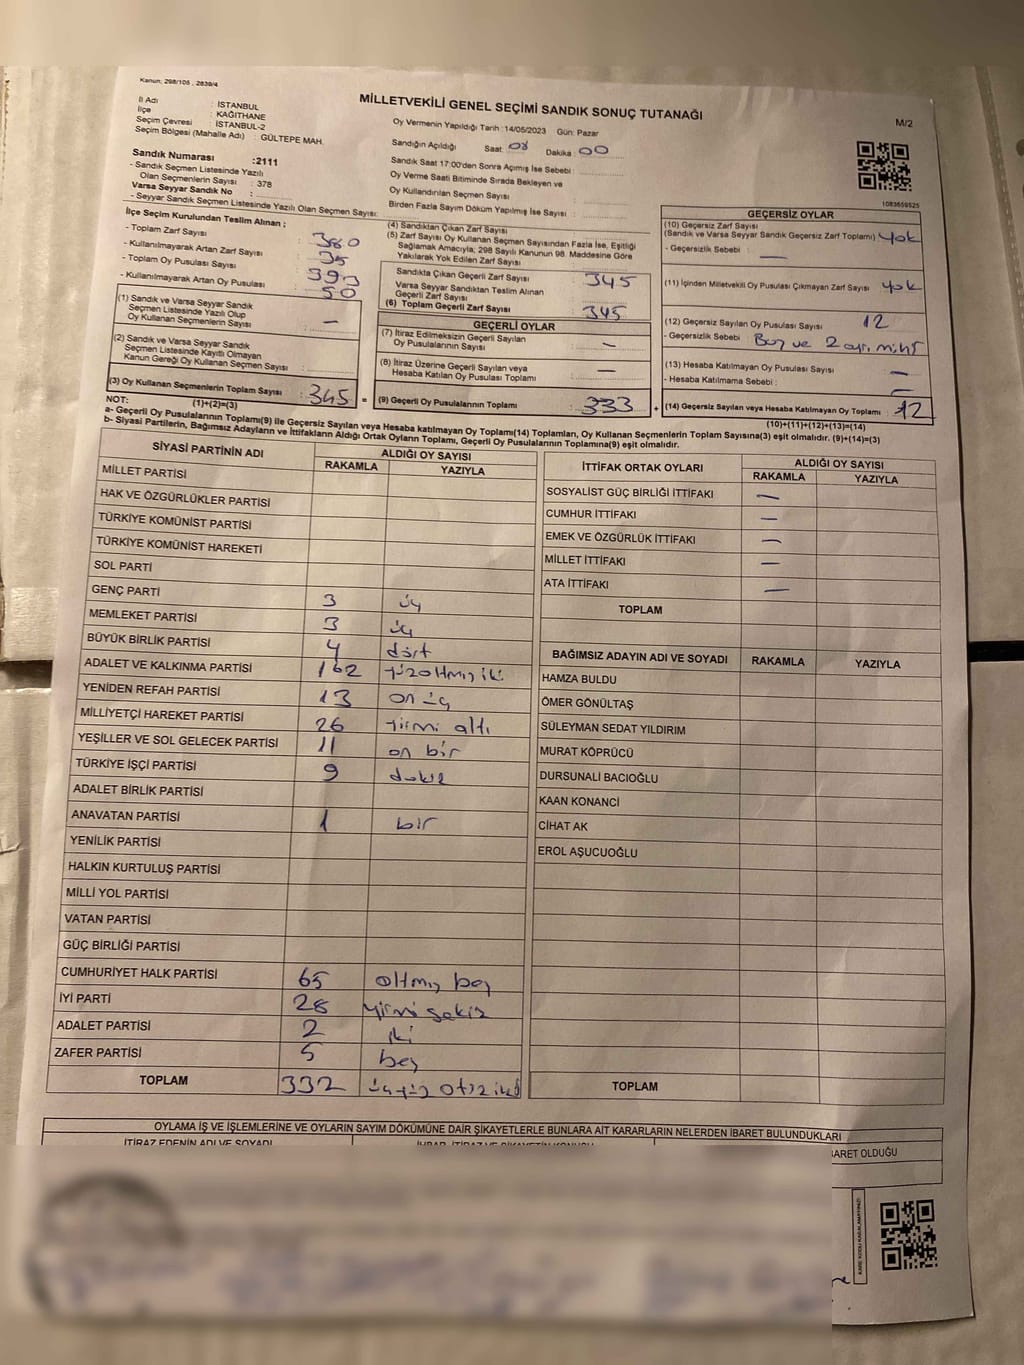 Kanun: 298/105 , 2839/4
MİLLETVEKİLİ GENEL SEÇİMİ SANDIK SONUÇ TUTANAĞI
M/2
İl Adı : İSTANBUL
İlçe : KAĞITHANE
Seçim Çevresi : İSTANBUL-2
Seçim Bölgesi (Mahalle Adı) : GÜLTEPE MAH.
Sandık Numarası :2111
- Sandık Seçmen Listesinde Yazılı
Olan Seçmenlerin Sayısı : 378
Varsa Seyyar Sandık No :
- Seyyar Sandık Seçmen Listesinde Yazılı Olan Seçmen Sayısı:
Oy Vermenin Yapıldığı Tarih :14/05/2023 Gün: Pazar
Sandığın Açıldığı Saat: 08 Dakika : 00
Sandık Saat 17:00'den Sonra Açılmış İse Sebebi :
Oy Verme Saati Bitiminde Sırada Bekleyen ve
Oy Kullandırılan Seçmen Sayısı :
Birden Fazla Sayım Döküm Yapılmış İse Sayısı :
1083659525
İlçe Seçim Kurulundan Teslim Alınan ;
- Toplam Zarf Sayısı : 380
- Kullanılmayarak Artan Zarf Sayısı : 35
- Toplam Oy Pusulası Sayısı : 393
- Kullanılmayarak Artan Oy Pusulası : 50
(1) Sandık ve Varsa Seyyar Sandık
Seçmen Listesinde Yazılı Olup
Oy Kullanan Seçmenlerin Sayısı : —
(2) Sandık ve Varsa Seyyar Sandık
Seçmen Listesinde Kayıtlı Olmayan
Kanun Gereği Oy Kullanan Seçmen Sayısı :
(3) Oy Kullanan Seçmenlerin Toplam Sayısı : 345 =
(4) Sandıktan Çıkan Zarf Sayısı :
(5) Zarf Sayısı Oy Kullanan Seçmen Sayısından Fazla İse, Eşitliği
Sağlamak Amacıyla; 298 Sayılı Kanunun 98. Maddesine Göre
Yakılarak Yok Edilen Zarf Sayısı :
Sandıkta Çıkan Geçerli Zarf Sayısı : 345
Varsa Seyyar Sandıktan Teslim Alınan
Geçerli Zarf Sayısı :
(6) Toplam Geçerli Zarf Sayısı : 345
GEÇERLİ OYLAR
(7) İtiraz Edilmeksizin Geçerli Sayılan
Oy Pusulalarının Sayısı : —
(8) İtiraz Üzerine Geçerli Sayılan veya
Hesaba Katılan Oy Pusulası Toplamı : —
(9) Geçerli Oy Pusulalarının Toplamı : 333 +
GEÇERSİZ OYLAR
(10) Geçersiz Zarf Sayısı
(Sandık ve Varsa Seyyar Sandık Geçersiz Zarf Toplamı) : Yok
- Geçersizlik Sebebi : —
(11) İçinden Milletvekili Oy Pusulası Çıkmayan Zarf Sayısı : Yok
(12) Geçersiz Sayılan Oy Pusulası Sayısı : 12
- Geçersizlik Sebebi : Boş ve 2 ayrı
(13) Hesaba Katılmayan Oy Pusulası Sayısı : —
- Hesaba Katılmama Sebebi : —
(14) Geçersiz Sayılan veya Hesaba Katılmayan Oy Toplamı : 12
NOT: (1)+(2)=(3)
(10)+(11)+(12)+(13)=(14)
a- Geçerli Oy Pusulalarının Toplamı(9) ile Geçersiz Sayılan veya Hesaba katılmayan Oy Toplamı(14) Toplamları, Oy Kullanan Seçmenlerin Toplam Sayısına(3) eşit olmalıdır. (9)+(14)=(3)
b- Siyasi Partilerin, Bağımsız Adayların ve İttifakların Aldığı Ortak Oyların Toplamı, Geçerli Oy Pusulalarının Toplamına(9) eşit olmalıdır.
SİYASİ PARTİNİN ADI ALDIĞI OY SAYISI
RAKAMLA YAZIYLA
MİLLET PARTİSİ
HAK VE ÖZGÜRLÜKLER PARTİSİ
TÜRKİYE KOMÜNİST PARTİSİ
TÜRKİYE KOMÜNİST HAREKETİ
SOL PARTİ
GENÇ PARTİ 3 üç
MEMLEKET PARTİSİ 3 üç
BÜYÜK BİRLİK PARTİSİ 4 dört
ADALET VE KALKINMA PARTİSİ 162 yüzaltmış iki
YENİDEN REFAH PARTİSİ 13 on üç
MİLLİYETÇİ HAREKET PARTİSİ 26 yirmi altı
YEŞİLLER VE SOL GELECEK PARTİSİ 11 on bir
TÜRKİYE İŞÇİ PARTİSİ 9 dokuz
ADALET BİRLİK PARTİSİ
ANAVATAN PARTİSİ 1 bir
YENİLİK PARTİSİ
HALKIN KURTULUŞ PARTİSİ
MİLLİ YOL PARTİSİ
VATAN PARTİSİ
GÜÇ BİRLİĞİ PARTİSİ
CUMHURİYET HALK PARTİSİ 65 altmış beş
İYİ PARTİ 28 yirmi sekiz
ADALET PARTİSİ 2 iki
ZAFER PARTİSİ 5 beş
TOPLAM 332 üçyüz otuz iki
İTTİFAK ORTAK OYLARI ALDIĞI OY SAYISI
RAKAMLA YAZIYLA
SOSYALİST GÜÇ BİRLİĞİ İTTİFAKI —
CUMHUR İTTİFAKI —
EMEK VE ÖZGÜRLÜK İTTİFAKI —
MİLLET İTTİFAKI —
ATA İTTİFAKI —
TOPLAM
BAĞIMSIZ ADAYIN ADI VE SOYADI RAKAMLA YAZIYLA
HAMZA BULDU
ÖMER GÖNÜLTAŞ
SÜLEYMAN SEDAT YILDIRIM
MURAT KÖPRÜCÜ
DURSUNALİ BACIOĞLU
KAAN KONANCİ
CİHAT AK
EROL AŞUCUOĞLU
TOPLAM
OYLAMA İŞ VE İŞLEMLERİNE VE OYLARIN SAYIM DÖKÜMÜNE DAİR ŞİKAYETLERLE BUNLARA AİT KARARLARIN NELERDEN İBARET BULUNDUKLARI
İTİRAZ EDENİN ADI VE SOYADI İHBAR, İTİRAZ VE ŞİKAYETİN KONUSU BARET OLDUĞU
KARE KODU KARALAMAYINIZ!